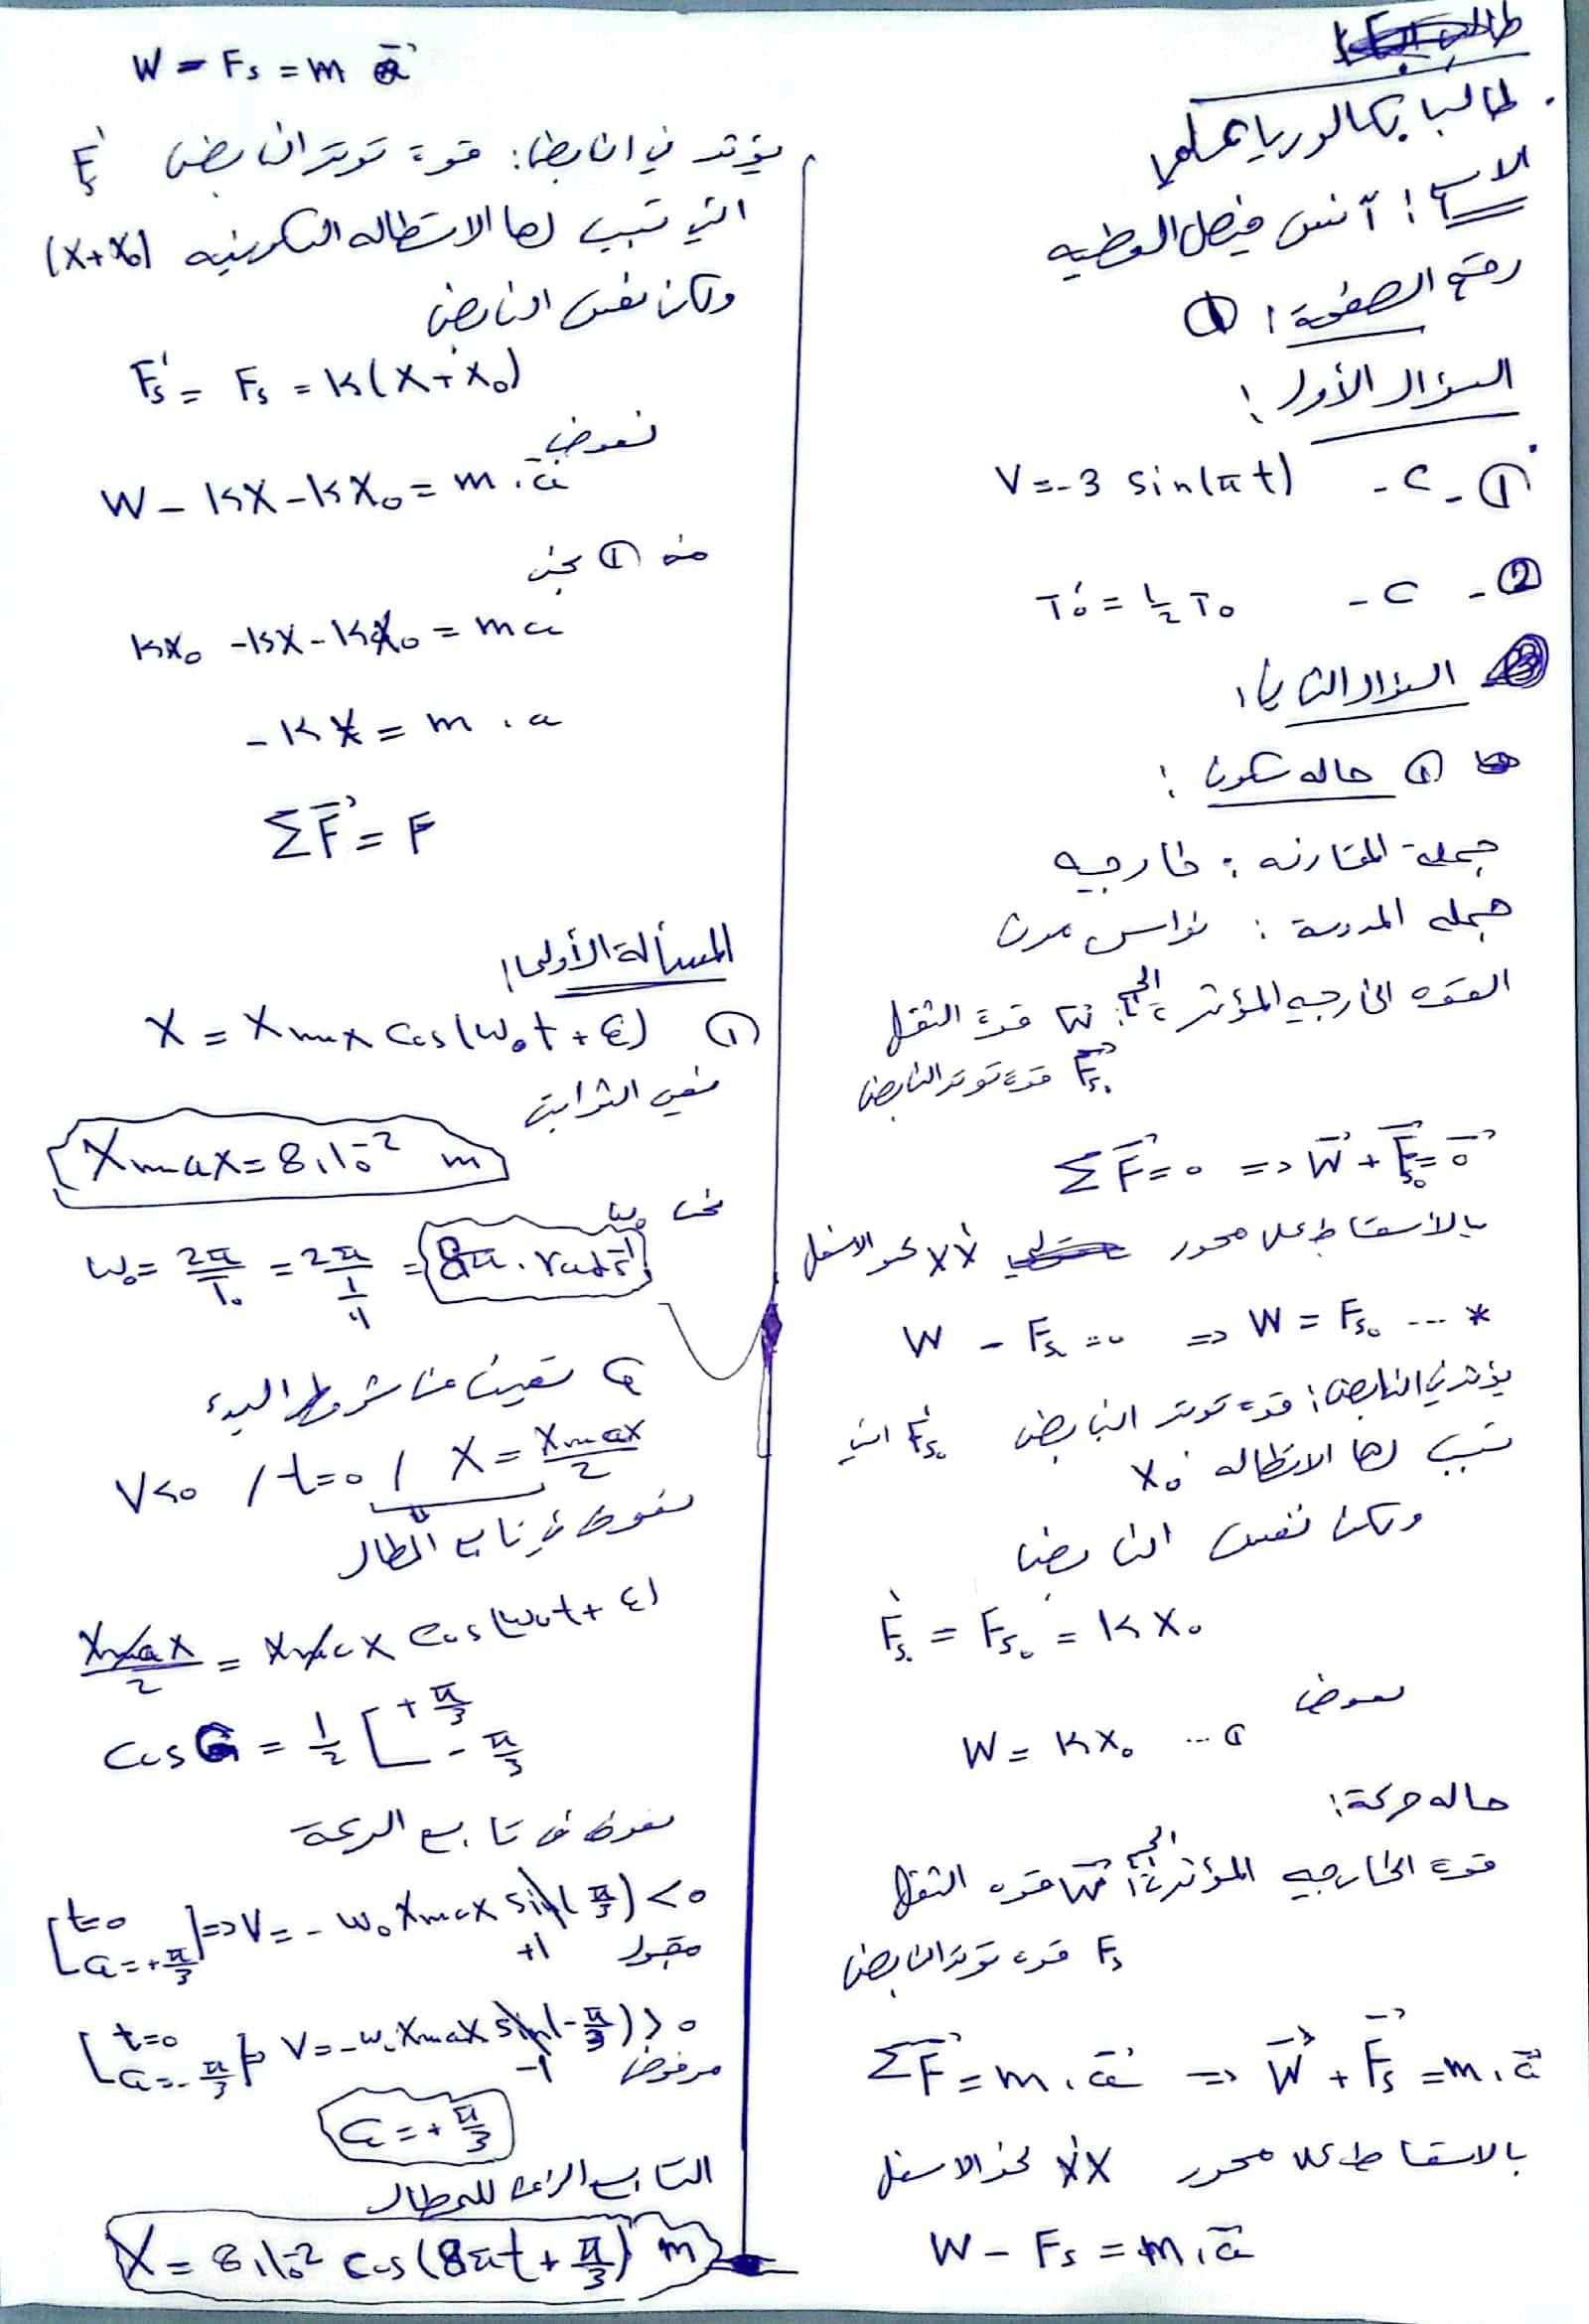 طالبا بكالوريا علمي
الاسم: آنس فيصل العطيه
رقم الصفحة: ①
السؤال الأول:
① - C - V = -3 sin(πt)
② - C - T₀' = 1/2 T₀
السؤال الثاني:
① حاله سكون:
جملة المقارنه: خارجيه
جمله المدروسة: نواس مرن
القوه الخارجيه المؤثرة: W قوة الثقل
Fs₀ قوة توتر النابض
ΣF = 0 => W + Fs₀ = 0
بالأسقاط على محور xx' نحو الاسفل
W - Fs₀ = 0 => W = Fs₀ ... *
يؤثر في النابض: قوة توتر النابض Fs₀' التي
تسبب لها الاستطاله x₀
ولكن نفس النابض
Fs₀' = Fs₀ = Kx₀
نعوض
W = Kx₀ ... ①
حاله حركة:
قوة الخارجيه المؤثرة: W قوه الثقل
Fs قوة توتر النابض
ΣF = m.a => W + Fs = m.a
بالاسقاط على محور xx' نحو الاسفل
W - Fs = m.a
W - Fs = m a
يؤثر في النابض: قوة توتر النابض Fs'
التي تسبب لها الاستطاله (x+x₀)
ولكن نفس النابض
Fs' = Fs = K(x+x₀)
نعوض
W - Kx - Kx₀ = m.a
من ① نجد
Kx₀ - Kx - Kx₀ = ma
-Kx = m.a
ΣF = F
المسألة الأولى:
① X = Xmax cos(ω₀t + φ)
نعين الثوابت
Xmax = 8.10⁻² m
ω₀ = 2π/T₀ = 2π/(1/4) = 8π.rad.s⁻¹
φ نعين من شروط البدء
V<0 / t=0 / X = Xmax/2
نعوض في تابع المطال
Xmax/2 = Xmax cos(ω₀t + φ)
cos φ = 1/2 [ +π/3
- π/3
نعوض في تابع السرعة
[t=0 φ=+π/3] => V = -ω₀ Xmax sin(π/3) < 0
+1 مقبول
[t=0 φ=-π/3] => V = -ω₀ Xmax sin(-π/3) > 0
-1 مرفوض
φ = +π/3
التابع الزمني للمطال
X = 8.10⁻² cos(8πt + π/3) m